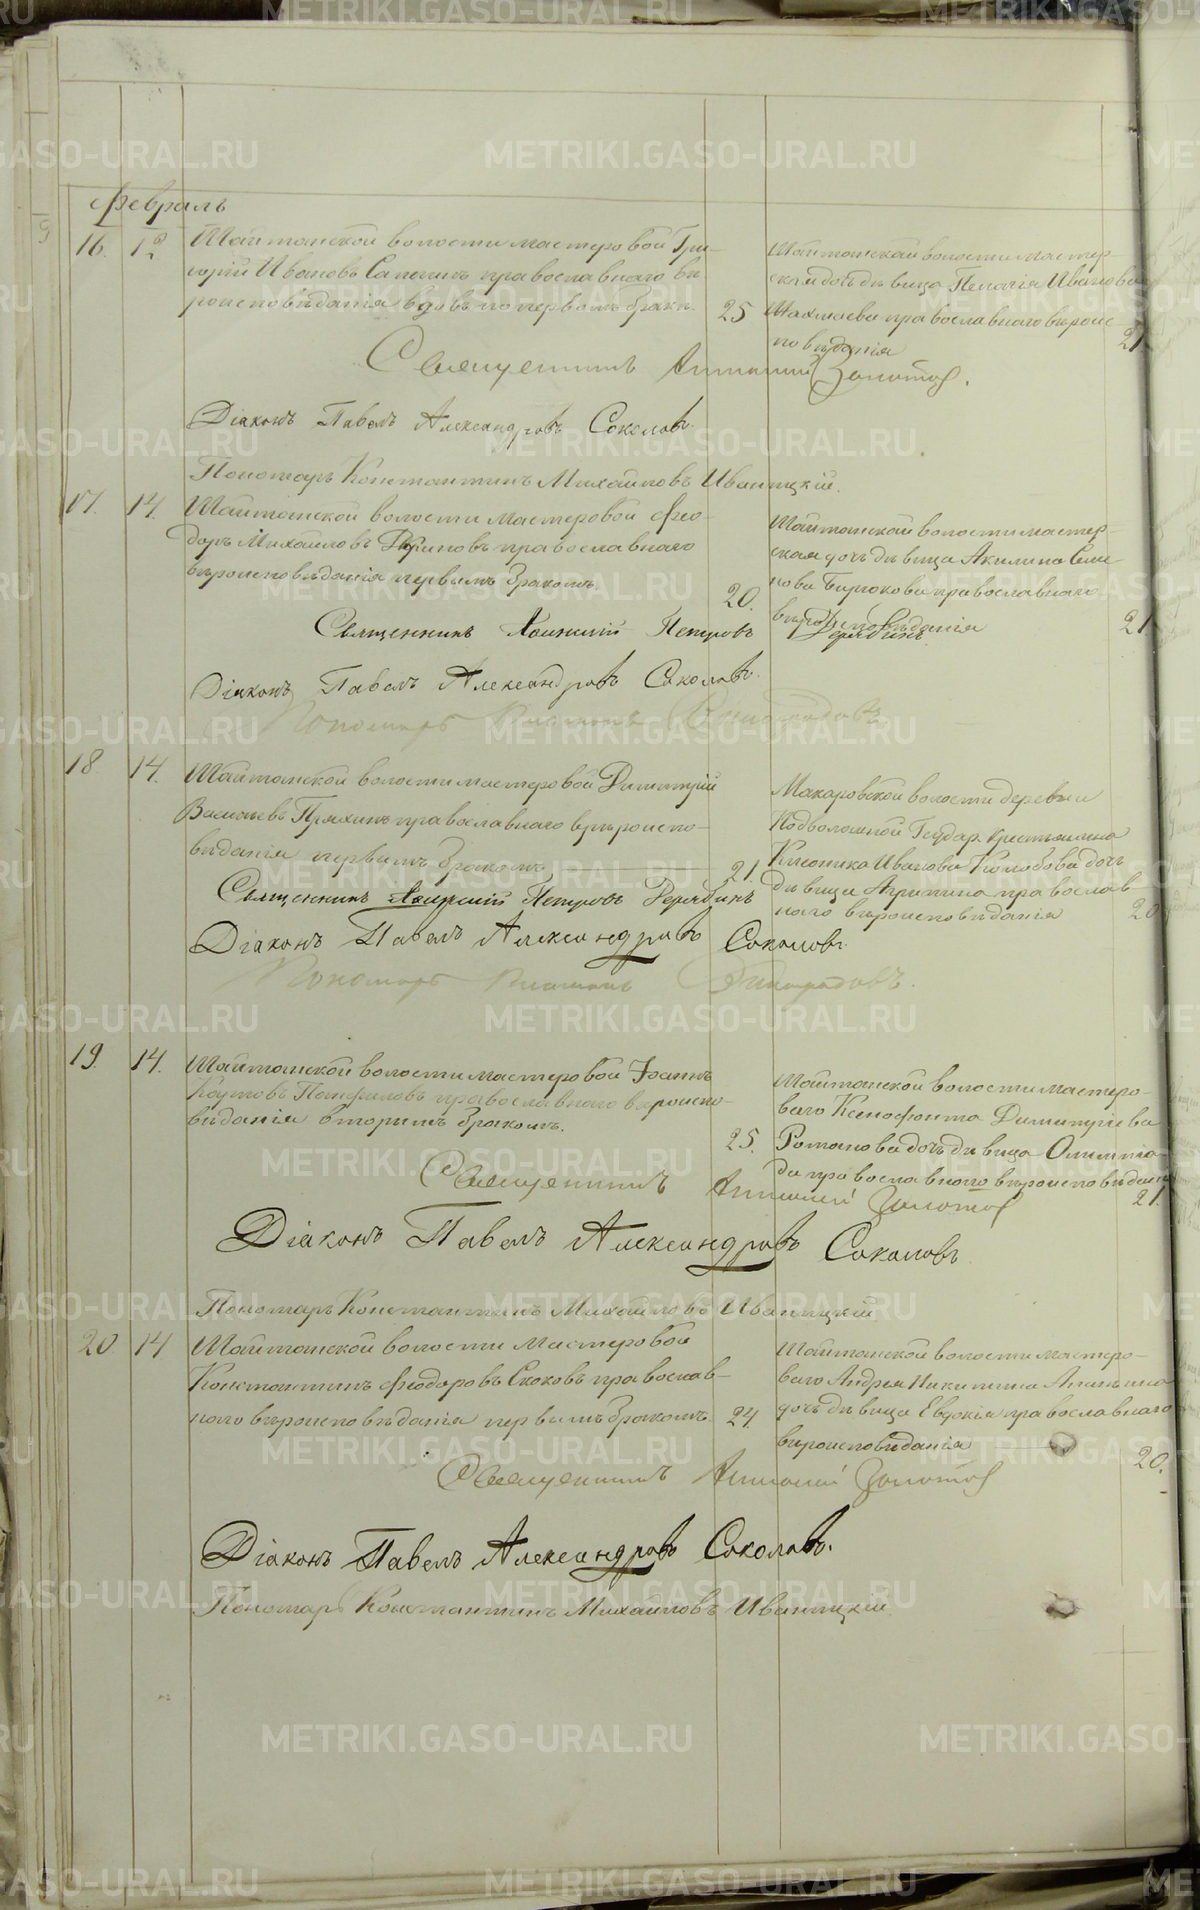 Февраль
16. 12 Шайтанской волости мастеровой Гри-
горій Ивановъ Сапогинъ православнаго вѣ-
роисповѣданія вдовъ по первомъ бракѣ. 25
Шайтанской волости мастер-
ская дочь дѣвица Пелагія Иванова
православнаго вѣроис-
повѣданія 21
Священникъ Золотов.
Діаконъ Павелъ Александровъ Соколовъ.
Пономарь Константинъ Михайловъ Иваницкій.
17. 14. Шайтанской волости мастеровой Фео-
доръ Михайловъ православнаго
вѣроисповѣданія первымъ бракомъ. 20.
Шайтанской волости мастер-
ская дочь дѣвица Акилина Семе-
нова Бирюкова православнаго
вѣроисповѣданія 21
Священникъ Петровъ
Діаконъ Павелъ Александровъ Соколовъ.
Пономарь Виноградовъ
18. 14. Шайтанской волости мастеровой Димитрій
Васильевъ Пряхинъ православнаго вѣроиспо-
вѣданія первымъ бракомъ 21.
Макаровской волости деревни
Подволошной Государ. крестьянина
Иванова Колобова дочь
дѣвица Агрипина православ
наго вѣроисповѣданія 20
Священникъ Петровъ
Діаконъ Павелъ Александровъ Соколовъ.
Пономарь Виноградовъ.
19. 14. Шайтанской волости мастеровой Іоаннъ
Панфиловъ православнаго вѣроиспо-
вѣданія вторымъ бракомъ. 25.
Шайтанской волости мастеро-
ваго Ксенофонта Димитріева
Романова дочь дѣвица Олимпіа-
да православнаго вѣроисповѣданія 21.
Священникъ Золотов
Діаконъ Павелъ Александровъ Соколовъ.
Пономарь Константинъ Михайловъ Иваницкій
20. 14 Шайтанской волости мастеровой
Константинъ Феодоровъ Скоковъ православ-
наго вѣроисповѣданія первымъ бракомъ. 24.
Шайтанской волости мастеро-
ваго Андрея Никитина Ананьина
дочь дѣвица Евдокія православнаго
вѣроисповѣданія 20.
Священникъ Золотов
Діаконъ Павелъ Александровъ Соколовъ.
Пономарь Константинъ Михайловъ Иваницкій
METRIKI.GASO-URAL.RU